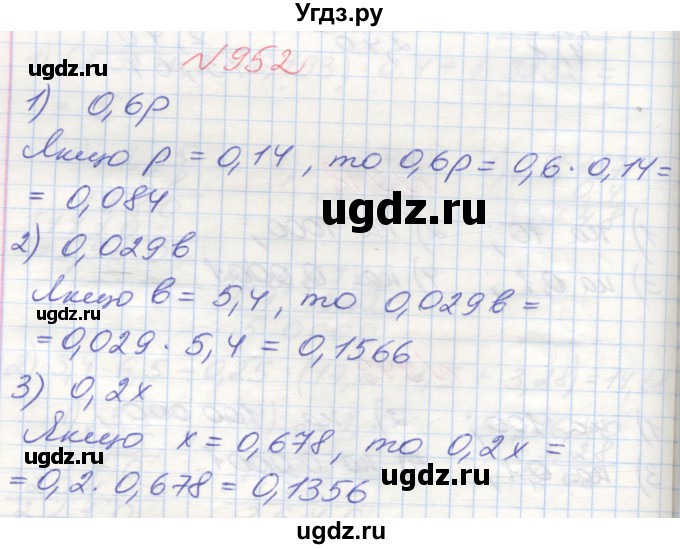 Угдз.ру
№952
ugdz.ru
ugdz.ru
1) 0,6p
Якщо p = 0,14, то 0,6p = 0,6 · 0,14 =
= 0,084
ugdz.ru
2) 0,029в
Якщо в = 5,4, то 0,029в =
= 0,029 · 5,4 = 0,1566
3) 0,2x
ugdz.ru
Якщо x = 0,678, то 0,2x =
ugdz.ru
ugdz.ru
= 0,2 · 0,678 = 0,1356
ugdz.ru